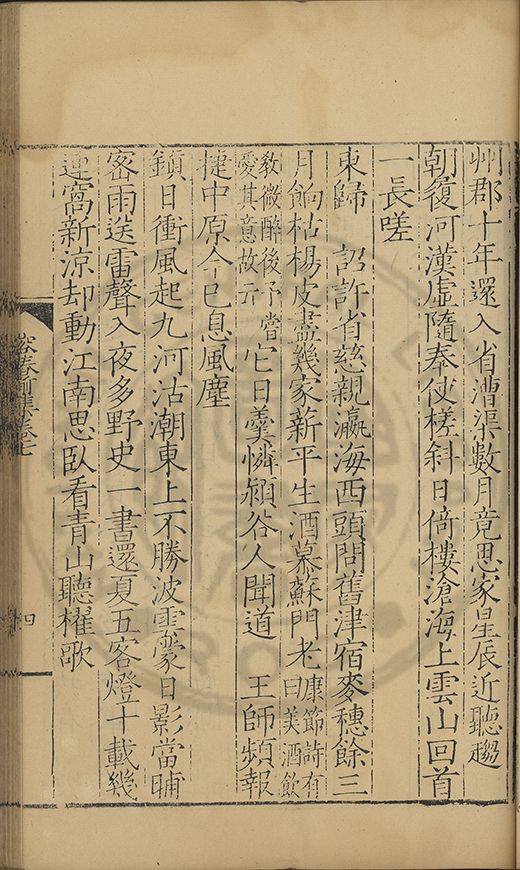 州郡十年還入省漕渠數月竟思家星辰近聽趨
朝履河漢虛隨奉使槎斜日倚樓滄海上雲山回首
一長嗟
東歸　詔許省慈親瀛海西頭問舊津宿麥穗餘三
月餉枯楊皮盡幾家薪平生酒慕蘇門老康節詩有曰美酒飲
教微醉後予嘗愛其意故云它日羹憐潁谷人聞道　王師頻報
捷中原今已息風塵
鎮日衝風起九河沽潮東上不勝波雲蒙日影當晡
密雨送雷聲入夜多野史一書還夏五客燈十載幾
連窩新涼却動江南思臥看青山聽櫂歌
四